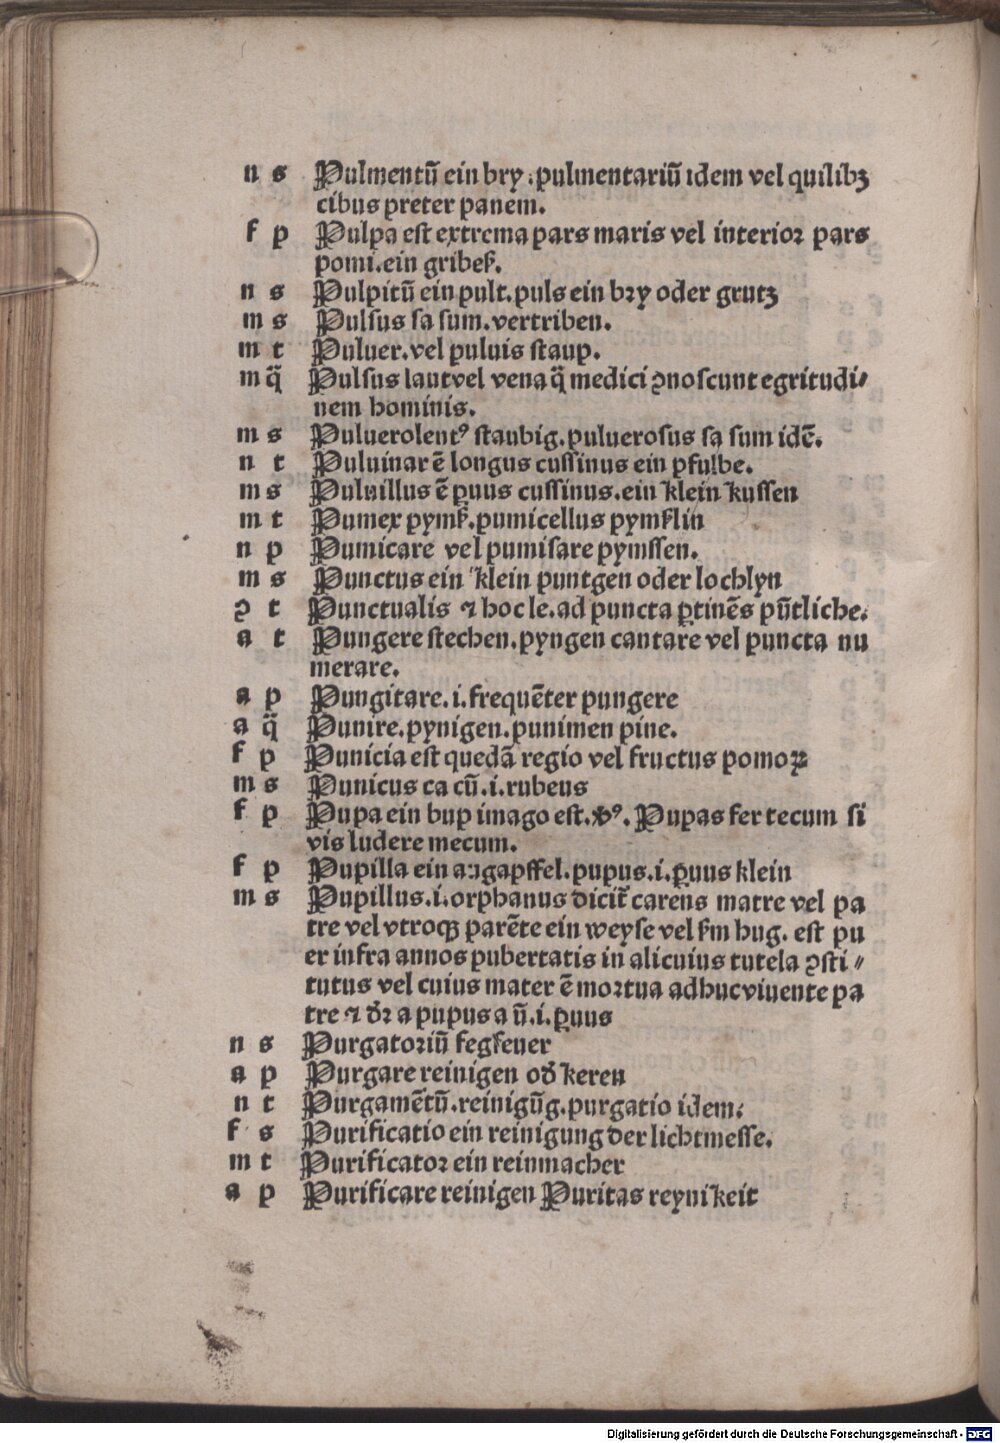 n s Pulmentū ein bry . pulmentariū idem vel quilibꝫ
cibus preter panem.
f p Pulpa est extrema pars maris vel interioꝛ pars
pomi. ein gribeß.
n s Pulpitū ein pult. puls ein bꝛy oder grutꝫ
m s Pulsus sa sum. vertriben.
m t Puluer. vel puluis staup.
m q̈ Pulsus laut vel vena q̈ medici ꝯnoscunt egritudi⸗
nem hominis.
m s Puluerolentꝰ staubig. puluerosus sa sum idē.
n t Puluinar ē longus cussinus ein pfulbe.
m s Puluillus ē ꝑuus cussinus. ein klein kussen
m t Pumex pymß. pumicellus pymßlin
n p Pumicare vel pumisare pymssen.
m s Punctus ein klein puntgen oder lochlyn
ꝯ t Punctualis ⁊ hoc le. ad puncta ꝑtinēs pūtliche.
a t Pungere stechen. pyngen cantare vel puncta nu
merare.
a p Pungitare. i. frequēter pungere
a q̈ Punire. pynigen. punimen pine.
f p Punicia est quedā regio vel fructus pomoꝝ
m s Punicus ca cū. i. rubeus
f p Pupa ein bup imago est. vꝰ. Pupas fer tecum si
vis ludere mecum.
f p Pupilla ein augapffel. pupus. i. ꝑuus klein
m s Pupillus. i. orphanus dicit̄ carens matre vel pa
tre vel vtroqꝫ parēte ein weyse vel ẜm hug. est pu
er infra annos pubertatis in alicuius tutela ꝯsti⸗
tutus vel cuius mater ē moꝛtua adhuc viuente pa
tre ⁊ dꝛ̄ a pupus a ū. i. ꝑuus
n s Purgatoꝛiū fegfeuer
a p Purgare reinigen od̄ keren
n t Purgamētū. reinigūg. purgatio idem.
f s Purificatio ein reinigung der lichtmesse.
m t Purificatoꝛ ein reinmacher
a p Purificare reinigen Puritas reynikeit
Digitalisierung gefördert durch die Deutsche Forschungsgemeinschaft - DFG